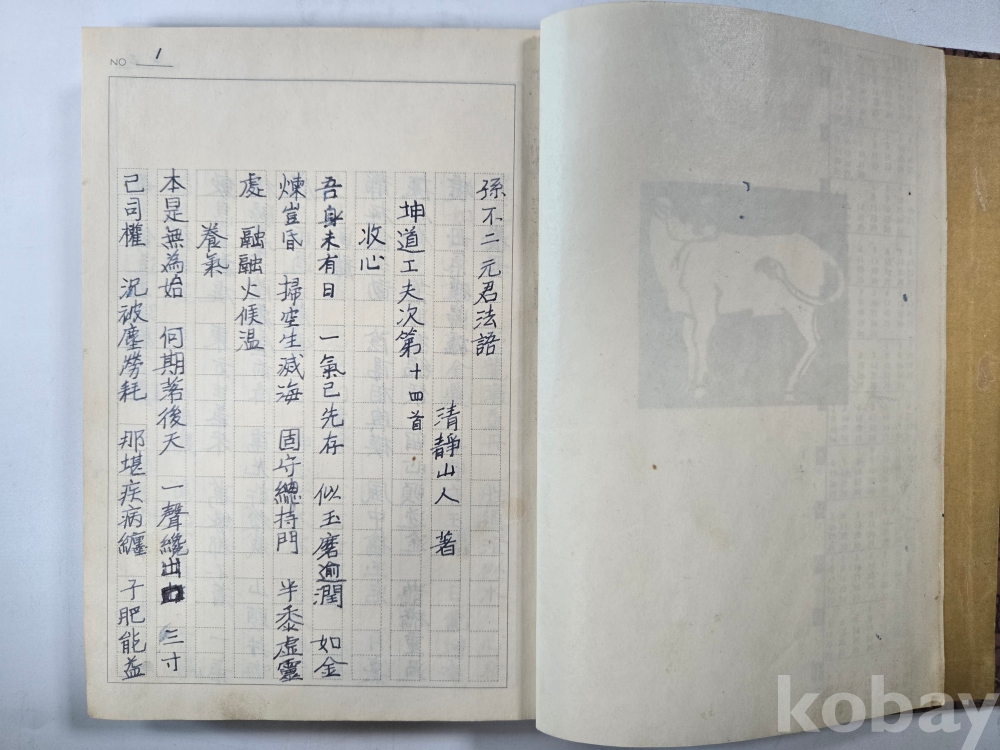 NO 1
孫不二元君法語
清靜山人 著
坤道工夫次第 十四首
收心
吾身未有日 一氣已先存 似玉磨逾潤 如金
煉豈昏 掃空生滅海 固守總持門 半黍虛靈
處 融融火候溫
養氣
本是無為始 何期落後天 一聲纔出 三寸
已司權 況被塵勞耗 那堪疾病纏 子肥能益
kobay